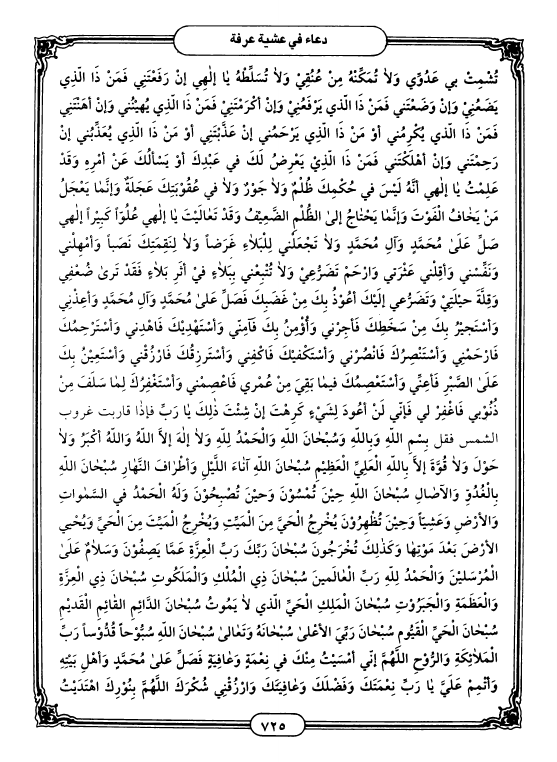 دعاء في عشية عرفة
تُشْمِتْ بي عَدُوِّي وَلاٰ تُمَكِّنْهُ مِنْ عُنُقِي وَلاٰ تُسَلِّطْهُ يٰا إلٰهي إنْ رَفَعْتَني فَمَنْ ذَا الَّذِي
يَضَعُنِيْ وَإنْ وَضَعْتَني فَمَنْ ذَا الَّذي يَرْفَعُنِيْ وَإنْ أكْرَمْتَنِيْ فَمَنْ ذَا الَّذِي يُهِيْنُني وَإنْ أهَنْتَنِي
فَمَنْ ذَا الَّذي يُكْرِمُني أوْ مَنْ ذَا الَّذِي يَرْحَمُني إنْ عَذَّبْتَنِي أوْ مَنْ ذَا الَّذِي يُعَذِّبُنِي إنْ
رَحِمْتَني وَإنْ أهْلَكْتَني فَمَنْ ذَا الَّذِيْ يَعْرِضُ لَكَ في عَبْدِكَ أوْ يَسْألُكَ عَنْ أمْرِهِ وَقَدْ
عَلِمْتُ يٰا إلٰهي أنَّهُ لَيْسَ في حُكْمِكَ ظُلْمٌ وَلاٰ جَوْرٌ وَلاٰ في عُقُوْبَتِكَ عَجَلَةٌ وَإنَّمٰا يَعْجَلُ
مَنْ يَخٰافُ الْفَوْتَ وَإنَّمٰا يَحْتٰاجُ إلىٰ الظُّلْمِ الضَّعِيْفُ وَقَدْ تَعٰالَيْتَ يٰا إلٰهي عُلُوّاً كَبِيْراً إلٰهي
صَلِّ عَلىٰ مُحَمَّدٍ وَآلِ مُحَمَّدٍ وَلاٰ تَجْعَلْنِي لِلْبَلاٰءِ غَرَضاً وَلاٰ لِنِقِمَتِكَ نَصَباً وَأمْهِلْنِي
وَنَفِّسْنِي وَأقِلْنِي عَثْرَتي وَارْحَمْ تَضَرُّعِيْ وَلاٰ تُتْبِعْنِي بِبَلاٰءٍ فِيْ أثَرِ بَلاٰءٍ فَقَدْ تَرىٰ ضَعْفِي
وَقِلَّةَ حِيْلَتِيْ وَتَضَرُّعي إلَيْكَ أعُوْذُ بِكَ مِنْ غَضَبِكَ فَصَلِّ عَلىٰ مُحَمَّدٍ وَآلِ مُحَمَّدٍ وَأعِذْنِي
وَأسْتَجِيْرُ بِكَ مِنْ سَخَطِكَ فَأجِرْنِي وَأُؤْمِنُ بِكَ فَآمِنِّي وَأسْتَهْدِيْكَ فَاهْدِنِي وَأسْتَرْحِمُكَ
فَارْحَمْنِي وَأسْتَنْصِرُكَ فَانْصُرْنِي وَأسْتَكْفِيْكَ فَاكْفِنِي وَأسْتَرْزِقُكَ فَارْزُقْنِي وَأسْتَعِيْنُ بِكَ
عَلىٰ الصَّبْرِ فَأعِنِّي وَأسْتَعْصِمُكَ فيمٰا بَقِيَ مِنْ عُمُرِي فَاعْصِمْنِي وَأسْتَغْفِرُكَ لِمٰا سَلَفَ مِنْ
ذُنُوْبِي فَاغْفِرْ لي فَإنِّي لَنْ أعُودَ لِشَيْءٍ كَرِهْتَ إنْ شِئْتَ ذٰلِكَ يٰا رَبِّ فإذا قاربت غروب
الشمس فقل بِسْمِ اللهِ وَبِاللهِ وَسُبْحٰانَ اللهِ وَالْحَمْدُ لِلّٰهِ وَلاٰ إلٰهَ إلاَّ اللهُ وَاللهُ أكْبَرُ وَلاٰ
حَوْلَ وَلاٰ قُوَّةَ إلاَّ بِاللهِ الْعَلِيِّ الْعَظِيْمِ سُبْحٰانَ اللهِ آنٰاءَ اللَّيْلِ وَأطْرٰافَ النَّهٰارِ سُبْحٰانَ اللهِ
بِالْغُدُوِّ وَالآصٰالِ سُبْحٰانَ اللهِ حِيْنَ تُمْسُوْنَ وَحِيْنَ تُصْبِحُوْنَ وَلَهُ الْحَمْدُ في السَّمٰوٰاتِ
وَالأرْضِ وَعَشِيّاً وَحِيْنَ تُظْهِرُوْنَ يُخْرِجُ الْحَيَّ مِنَ الْمَيِّتِ وَيُخْرِجُ الْمَيِّتَ مِنَ الْحَيِّ وَيُحْيِي
الأرْضَ بَعْدَ مَوْتِهٰا وَكَذٰلِكَ تُخْرَجُونَ سُبْحٰانَ رَبِّكَ رَبِّ الْعِزَّةِ عَمّٰا يَصِفُوْنَ وَسَلاٰمٌ عَلىٰ
الْمُرْسَلِيْنَ وَالْحَمْدُ لِلّٰهِ رَبِّ الْعٰالَمِينَ سُبْحٰانَ ذِي الْمُلْكِ وَالْمَلَكُوتِ سُبْحٰانَ ذِي الْعِزَّةِ
وَالْعَظَمَةِ وَالْجَبَرُوْتِ سُبْحٰانَ الْمَلِكِ الْحَيِّ الَّذي لاٰ يَمُوتُ سُبْحٰانَ الدّٰائِمِ القٰائِمِ الْقَدِيْمِ
سُبْحٰانَ الْحَيِّ الْقَيُّومِ سُبْحٰانَ رَبِّيَ الأعْلىٰ سُبْحٰانَهُ وَتَعٰالىٰ سُبْحٰانَ اللهِ سُبُّوْحاً قُدُّوْساً رَبِّ
الْمَلاٰئِكَةِ وَالرُّوْحِ اللَّهُمَّ إنِّي أمْسَيْتُ مِنْكَ في نِعْمَةٍ وَعٰافِيَةٍ فَصَلِّ عَلىٰ مُحَمَّدٍ وَأهْلِ بَيْتِهِ
وَأتْمِمْ عَلَيَّ يٰا رَبِّ نِعْمَتَكَ وَفَضْلَكَ وَعٰافِيَتَكَ وَارْزُقْنِي شُكْرَكَ اللَّهُمَّ بِنُوْرِكَ اهْتَدَيْتُ
٧٢٥